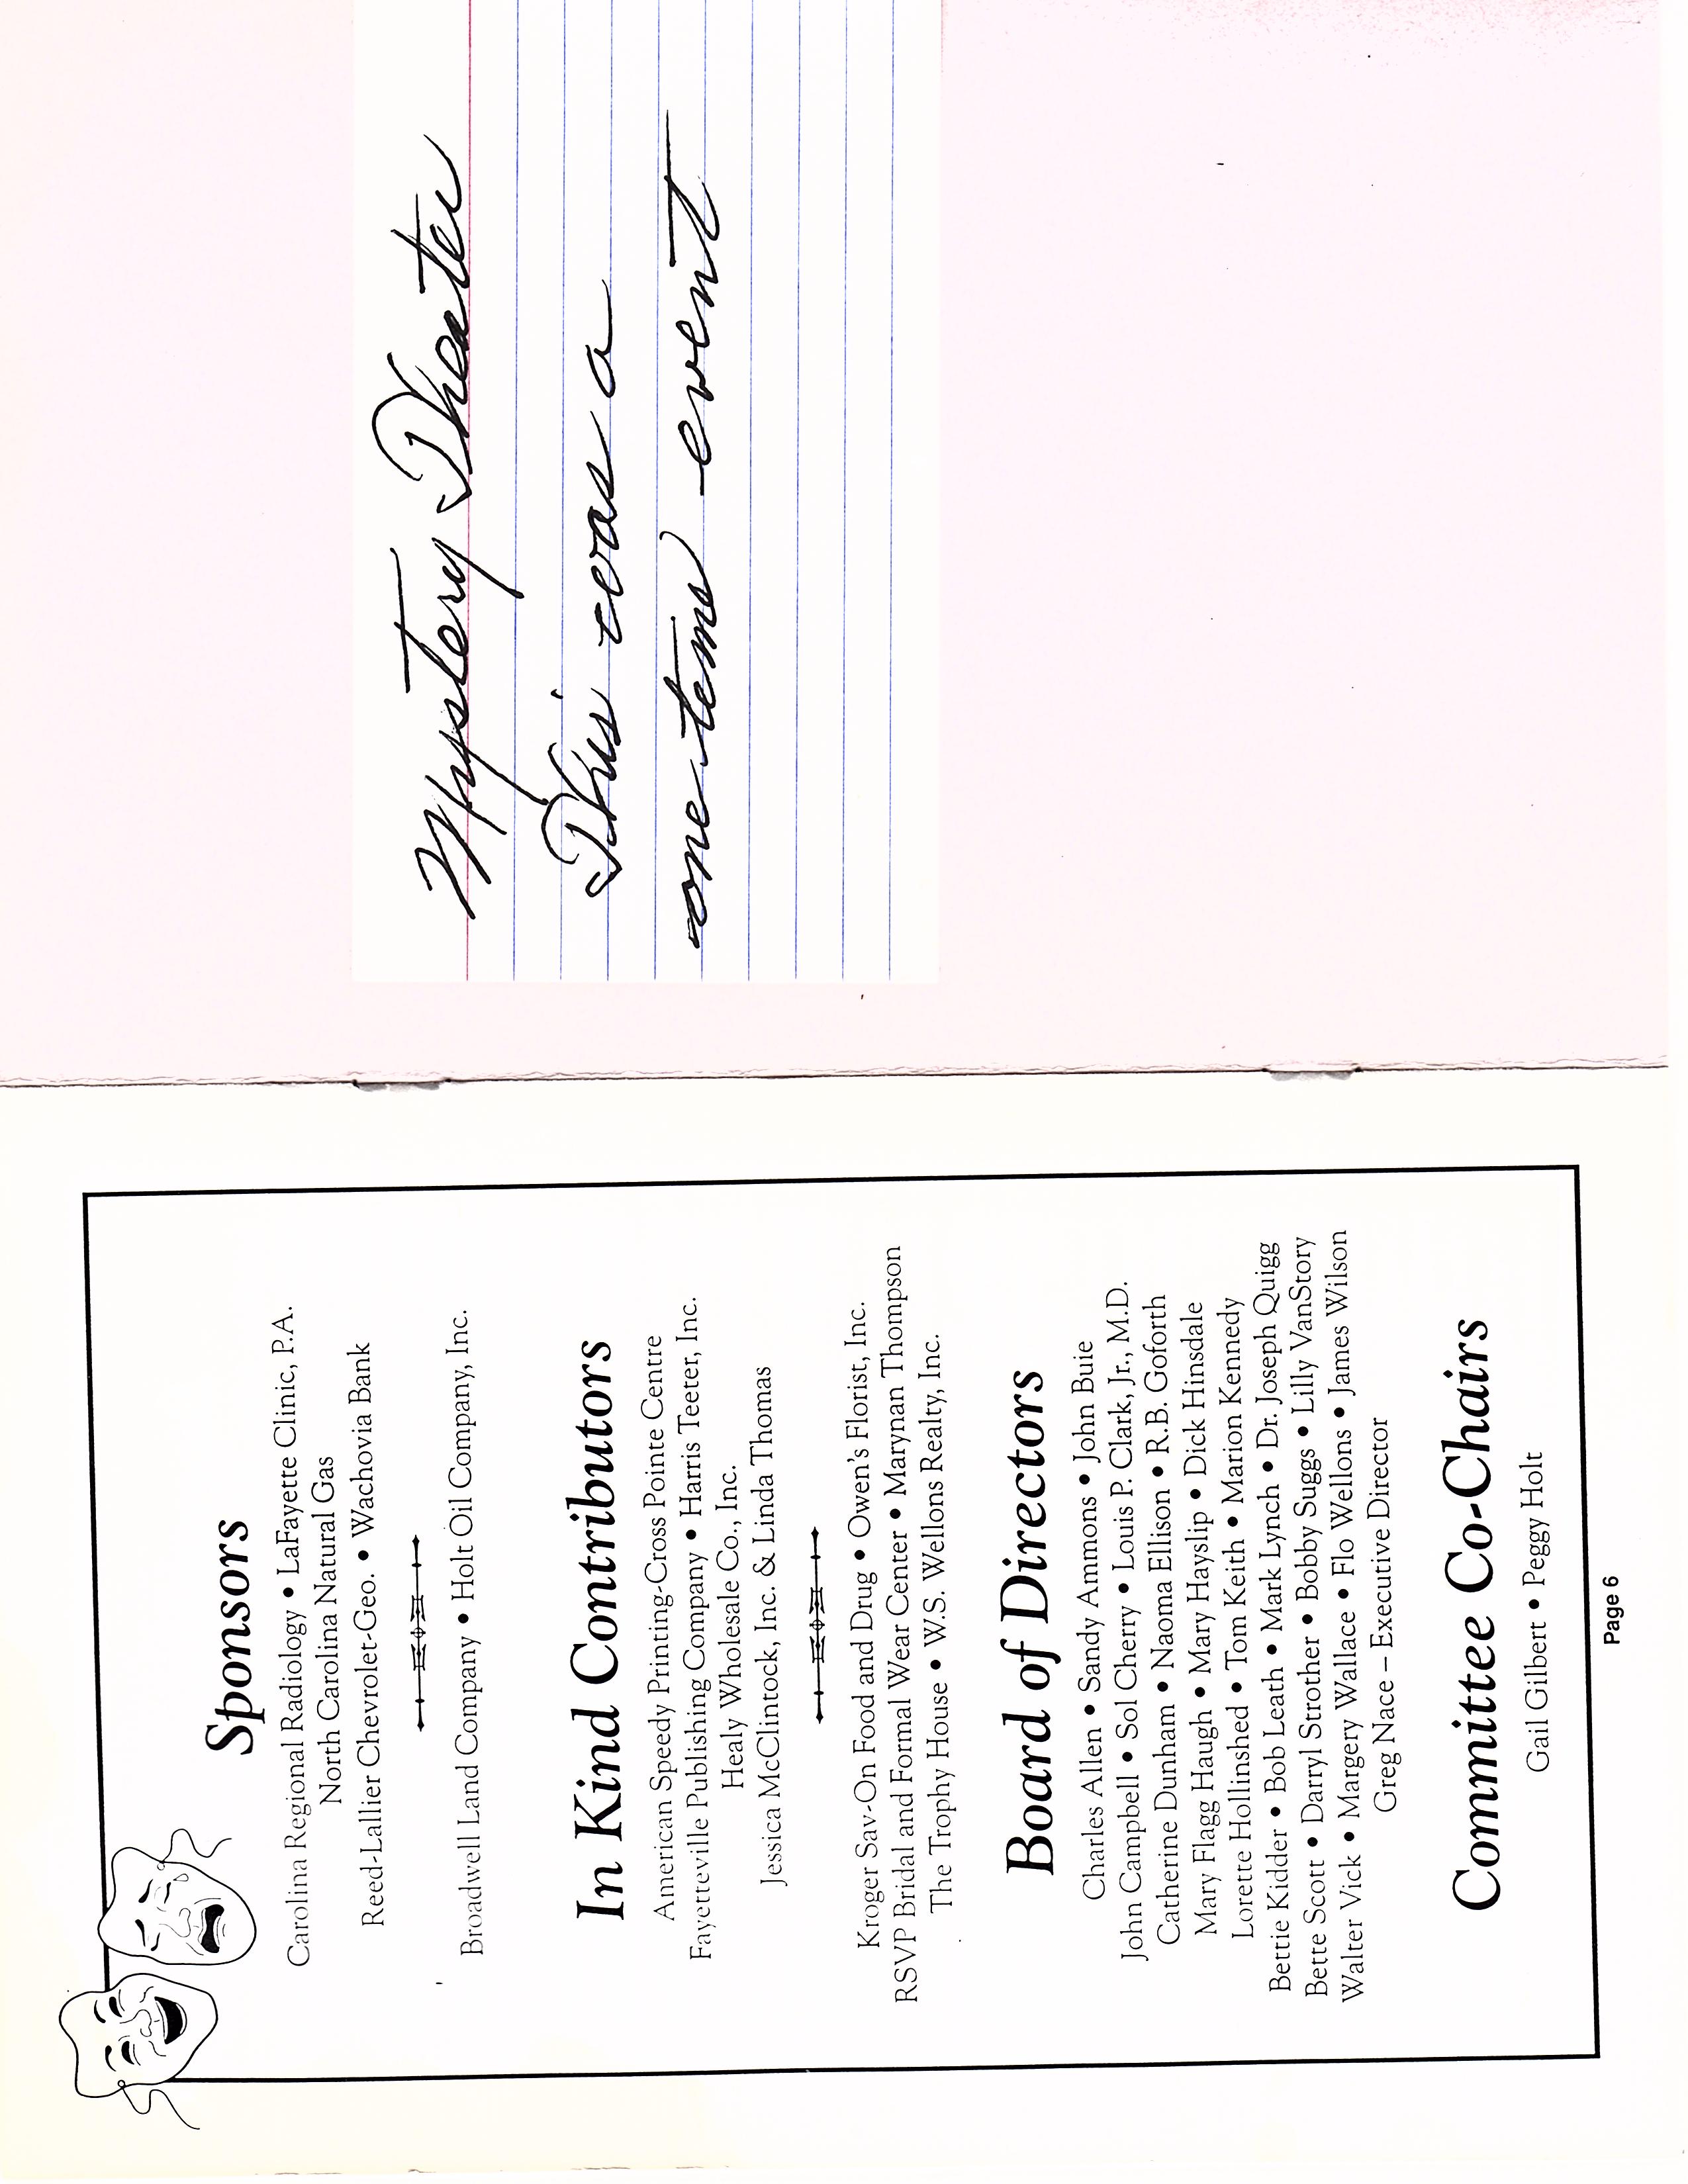 Sponsors
Carolina Regional Radiology • LaFayette Clinic, P.A.
North Carolina Natural Gas
Reed-Lallier Chevrolet-Geo. • Wachovia Bank
Broadwell Land Company • Holt Oil Company, Inc.
In Kind Contributors
American Speedy Printing-Cross Pointe Centre
Fayetteville Publishing Company • Harris Teeter, Inc.
Healy Wholesale Co., Inc.
Jessica McClintock, Inc. & Linda Thomas
Kroger Sav-On Food and Drug • Owen's Florist, Inc.
RSVP Bridal and Formal Wear Center • Marynan Thompson
The Trophy House • W.S. Wellons Realty, Inc.
Board of Directors
Charles Allen • Sandy Ammons • John Buie
John Campbell • Sol Cherry • Louis P. Clark, Jr., M.D.
Catherine Dunham • Naoma Ellison • R.B. Goforth
Mary Flagg Haugh • Mary Hayslip • Dick Hinsdale
Lorette Hollinshed • Tom Keith • Marion Kennedy
Bettie Kidder • Bob Leath • Mark Lynch • Dr. Joseph Quigg
Bette Scott • Darryl Strother • Bobby Suggs • Lilly VanStory
Walter Vick • Margery Wallace • Flo Wellons • James Wilson
Greg Nace – Executive Director
Committee Co-Chairs
Gail Gilbert • Peggy Holt
Page 6
Mystery Theater
This was a
one time event